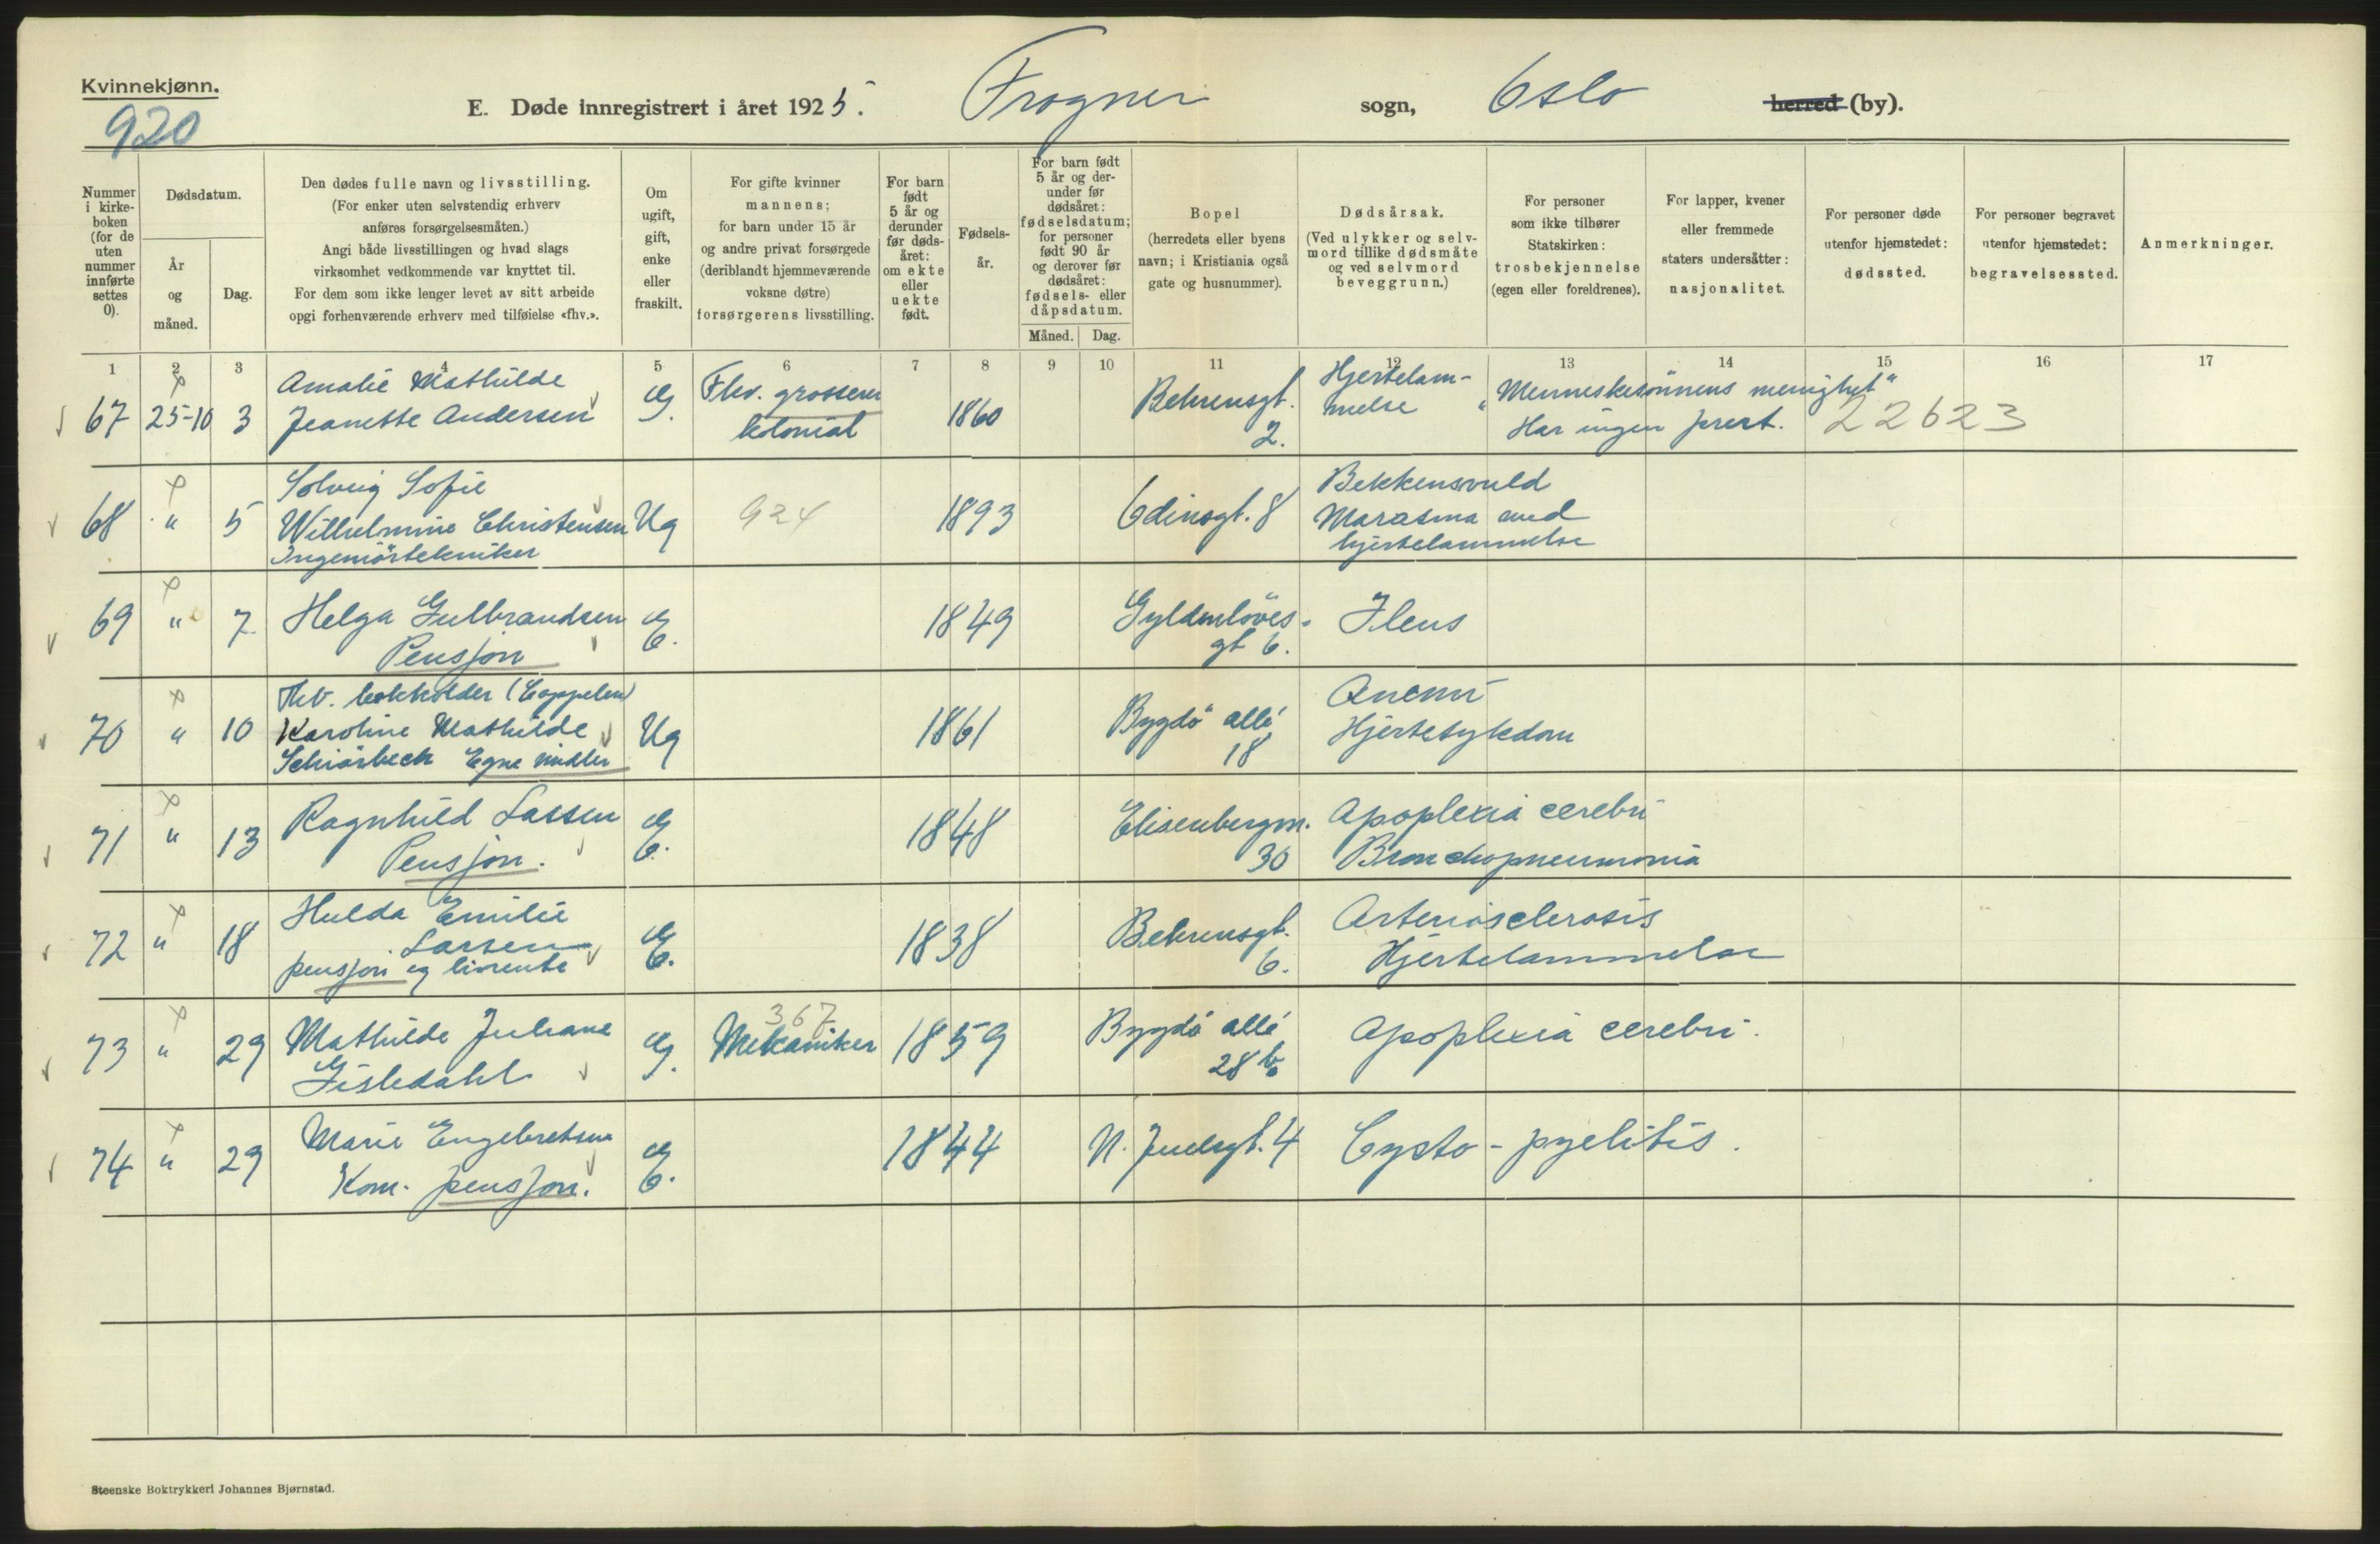 Kvinnekjønn.
920
E. Døde innregistrert i året 1925. Frogner sogn, Oslo herred (by).
Nummer i kirkeboken (for de uten nummer innførte settes 0).
Dødsdatum.
År og måned.
Dag.
Den dødes fulle navn og livsstilling.
(For enker uten selvstendig erhverv
anføres forsørgelsesmåten.)
Angi både livsstillingen og hvad slags
virksomhet vedkommende var knyttet til.
For dem som ikke lenger levet av sitt arbeide
opgi forhenværende erhverv med tilføielse «fhv.».
Om
ugift,
gift,
enke
eller
fraskilt.
For gifte kvinner
mannens;
for barn under 15 år
og andre privat forsørgede
(deriblandt hjemmeværende
voksne døtre)
forsørgerens livsstilling.
For barn
født
5 år og
derunder
før døds-
året:
om ekte
eller
uekte
født.
Fødsels-
år.
For barn født
5 år og der-
under før
dødsåret:
fødselsdatum;
for personer
født 90 år
og derover før
dødsåret:
fødsels- eller
dåpsdatum.
Måned. Dag.
Bopel
(herredets eller byens
navn; i Kristiania også
gate og husnummer).
Dødsårsak.
(Ved ulykker og selv-
mord tillike dødsmåte
og ved selvmord
beveggrunn.)
For personer
som ikke tilhører
Statskirken:
trosbekjennelse
(egen eller foreldrenes).
For lapper, kvener
eller fremmede
staters undersåtter:
nasjonalitet.
For personer døde
utenfor hjemstedet:
dødssted.
For personer begravet
utenfor hjemstedet:
begravelsessted.
Anmerkninger.
1 2 3 4 5 6 7 8 9 10 11 12 13 14 15 16 17
67 25-10 3 Amalie Mathilde
Jeanette Andersen G. Fhv. grosserer
kolonial 1860 Behrensgt.
2. Hjertelam-
melse "Menneskesönnens menighet"
Har ingen prest. 22623
68 " 5 Solveig Sofie
Wilhelmine Christensen
Ingeniörtekniker Ug 924 1893 Odinsgt. 8 Bekkensvuld
Marasma med
hjertelammelse
69 " 7 Helga Gulbrandsen
Pensjon E. 1849 Gyldenlöves-
gt 6. Ileus
70 " 10 Fhv. bokholder (Cappelen)
Karoline Mathilde
Schiörbeck Egne midler Ug 1861 Bygdö allé
18 Anemi
Hjertesykdom
71 " 13 Ragnhild Lassen
Pensjon. E. 1848 Elisenbergvn.
30 Apoplexia cerebri
Bronchopneumonia
72 " 18 Hulda Emilie
Larsen
pensjon og livrente E. 1838 Behrensgt.
6. Arteriosclerosis
Hjertelammelse
73 " 29 Mathilde Juliane
Gisledahl G. 367
Mekaniker 1859 Bygdö allé
28 b Apoplexia cerebri.
74 " 29 Marie Engebretsen
Kom. pensjon. E. 1844 N. Juelsgt. 4 Cysto-pyelitis.
Steenske Boktrykkeri Johannes Bjørnstad.